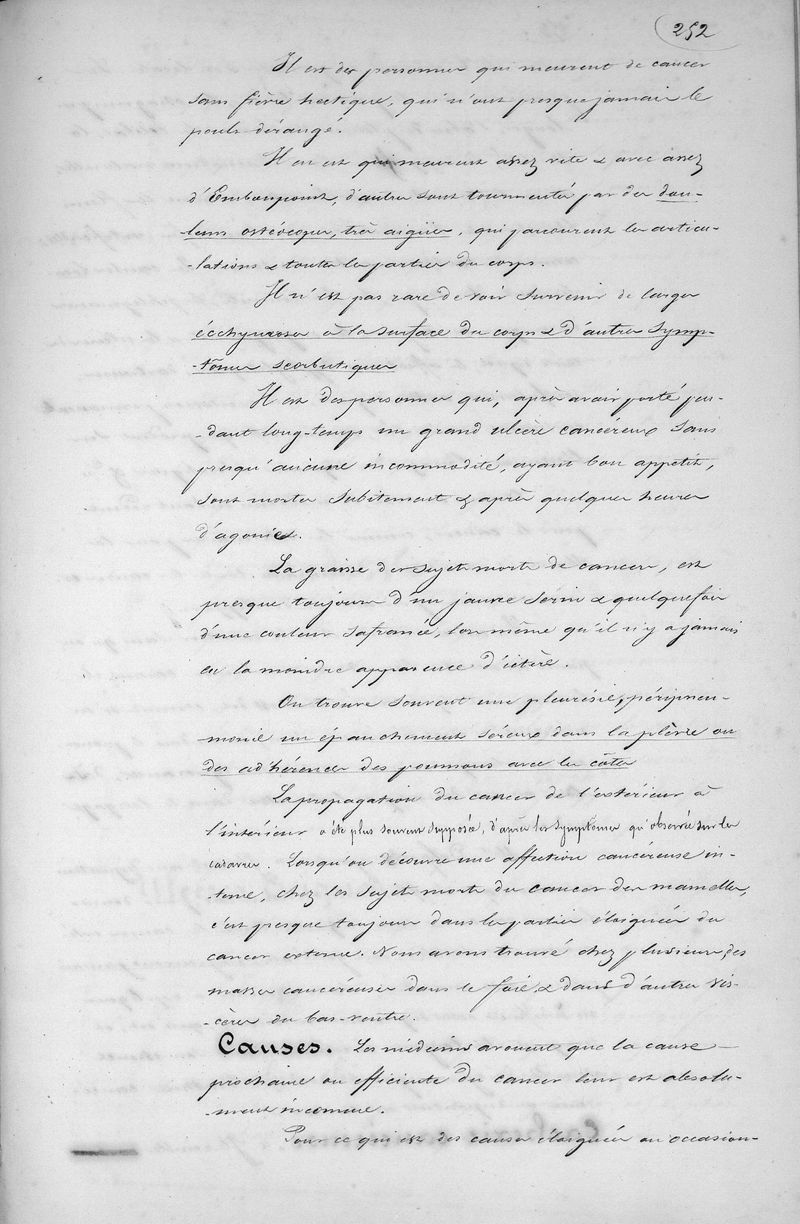 252
Il est des personnes qui meurent de cancer
sans fièvre hectique, qui n'ont presque jamais le
pouls dérangé.
Il en est qui meurent assez vite & avec assez
d'Embonpoint, d'autres sont tourmentés par des dou-
leurs ostéocopes, très aigües, qui parcourent les articu-
-lations & toutes les parties du corps.
Il n'est pas rare de voir survenir de larges
écchymoses à la surface du corps & d'autres symp-
-tômes scorbutiques
Il est des personnes qui, après avoir porté pen-
-dant long-temps un grand ulcère cancéreux sans
presqu'aucune incommodité, ayant bon appétit,
sont mortes subitement & après quelques heures
d'agonies.
La graisse des sujets morts de cancer, est
presque toujours d'un jaune serin & quelquefois
d'une couleur safranée, lors même qu'il n'y a jamais
eu la moindre apparence d'ictère.
On trouve souvent une pleurésie, péripneu-
-monie un épanchement séreux dans la plèvre ou
des adhérences des poumons avec les côtes
La propagation du cancer de l'extérieur à
l'intérieur a été plus souvent supposée, d'après les symptômes qu'observée sur les
cadavres. Lorsqu'on découvre une affection cancéreuse in-
-terne, chez les sujets morts du cancer des mamelles,
c'est presque toujours dans les parties éloignées du
cancer externe. Nous avons trouvé chez plusieurs, des
masses cancéreuses dans le foie & dans d'autres vis-
-cères du bas-ventre.
Causes. Les médecins avouent que la cause
prochaine ou efficiente du cancer leur est absolu-
-ment inconnue.
Pour ce qui est des causes éloignées ou occasion-